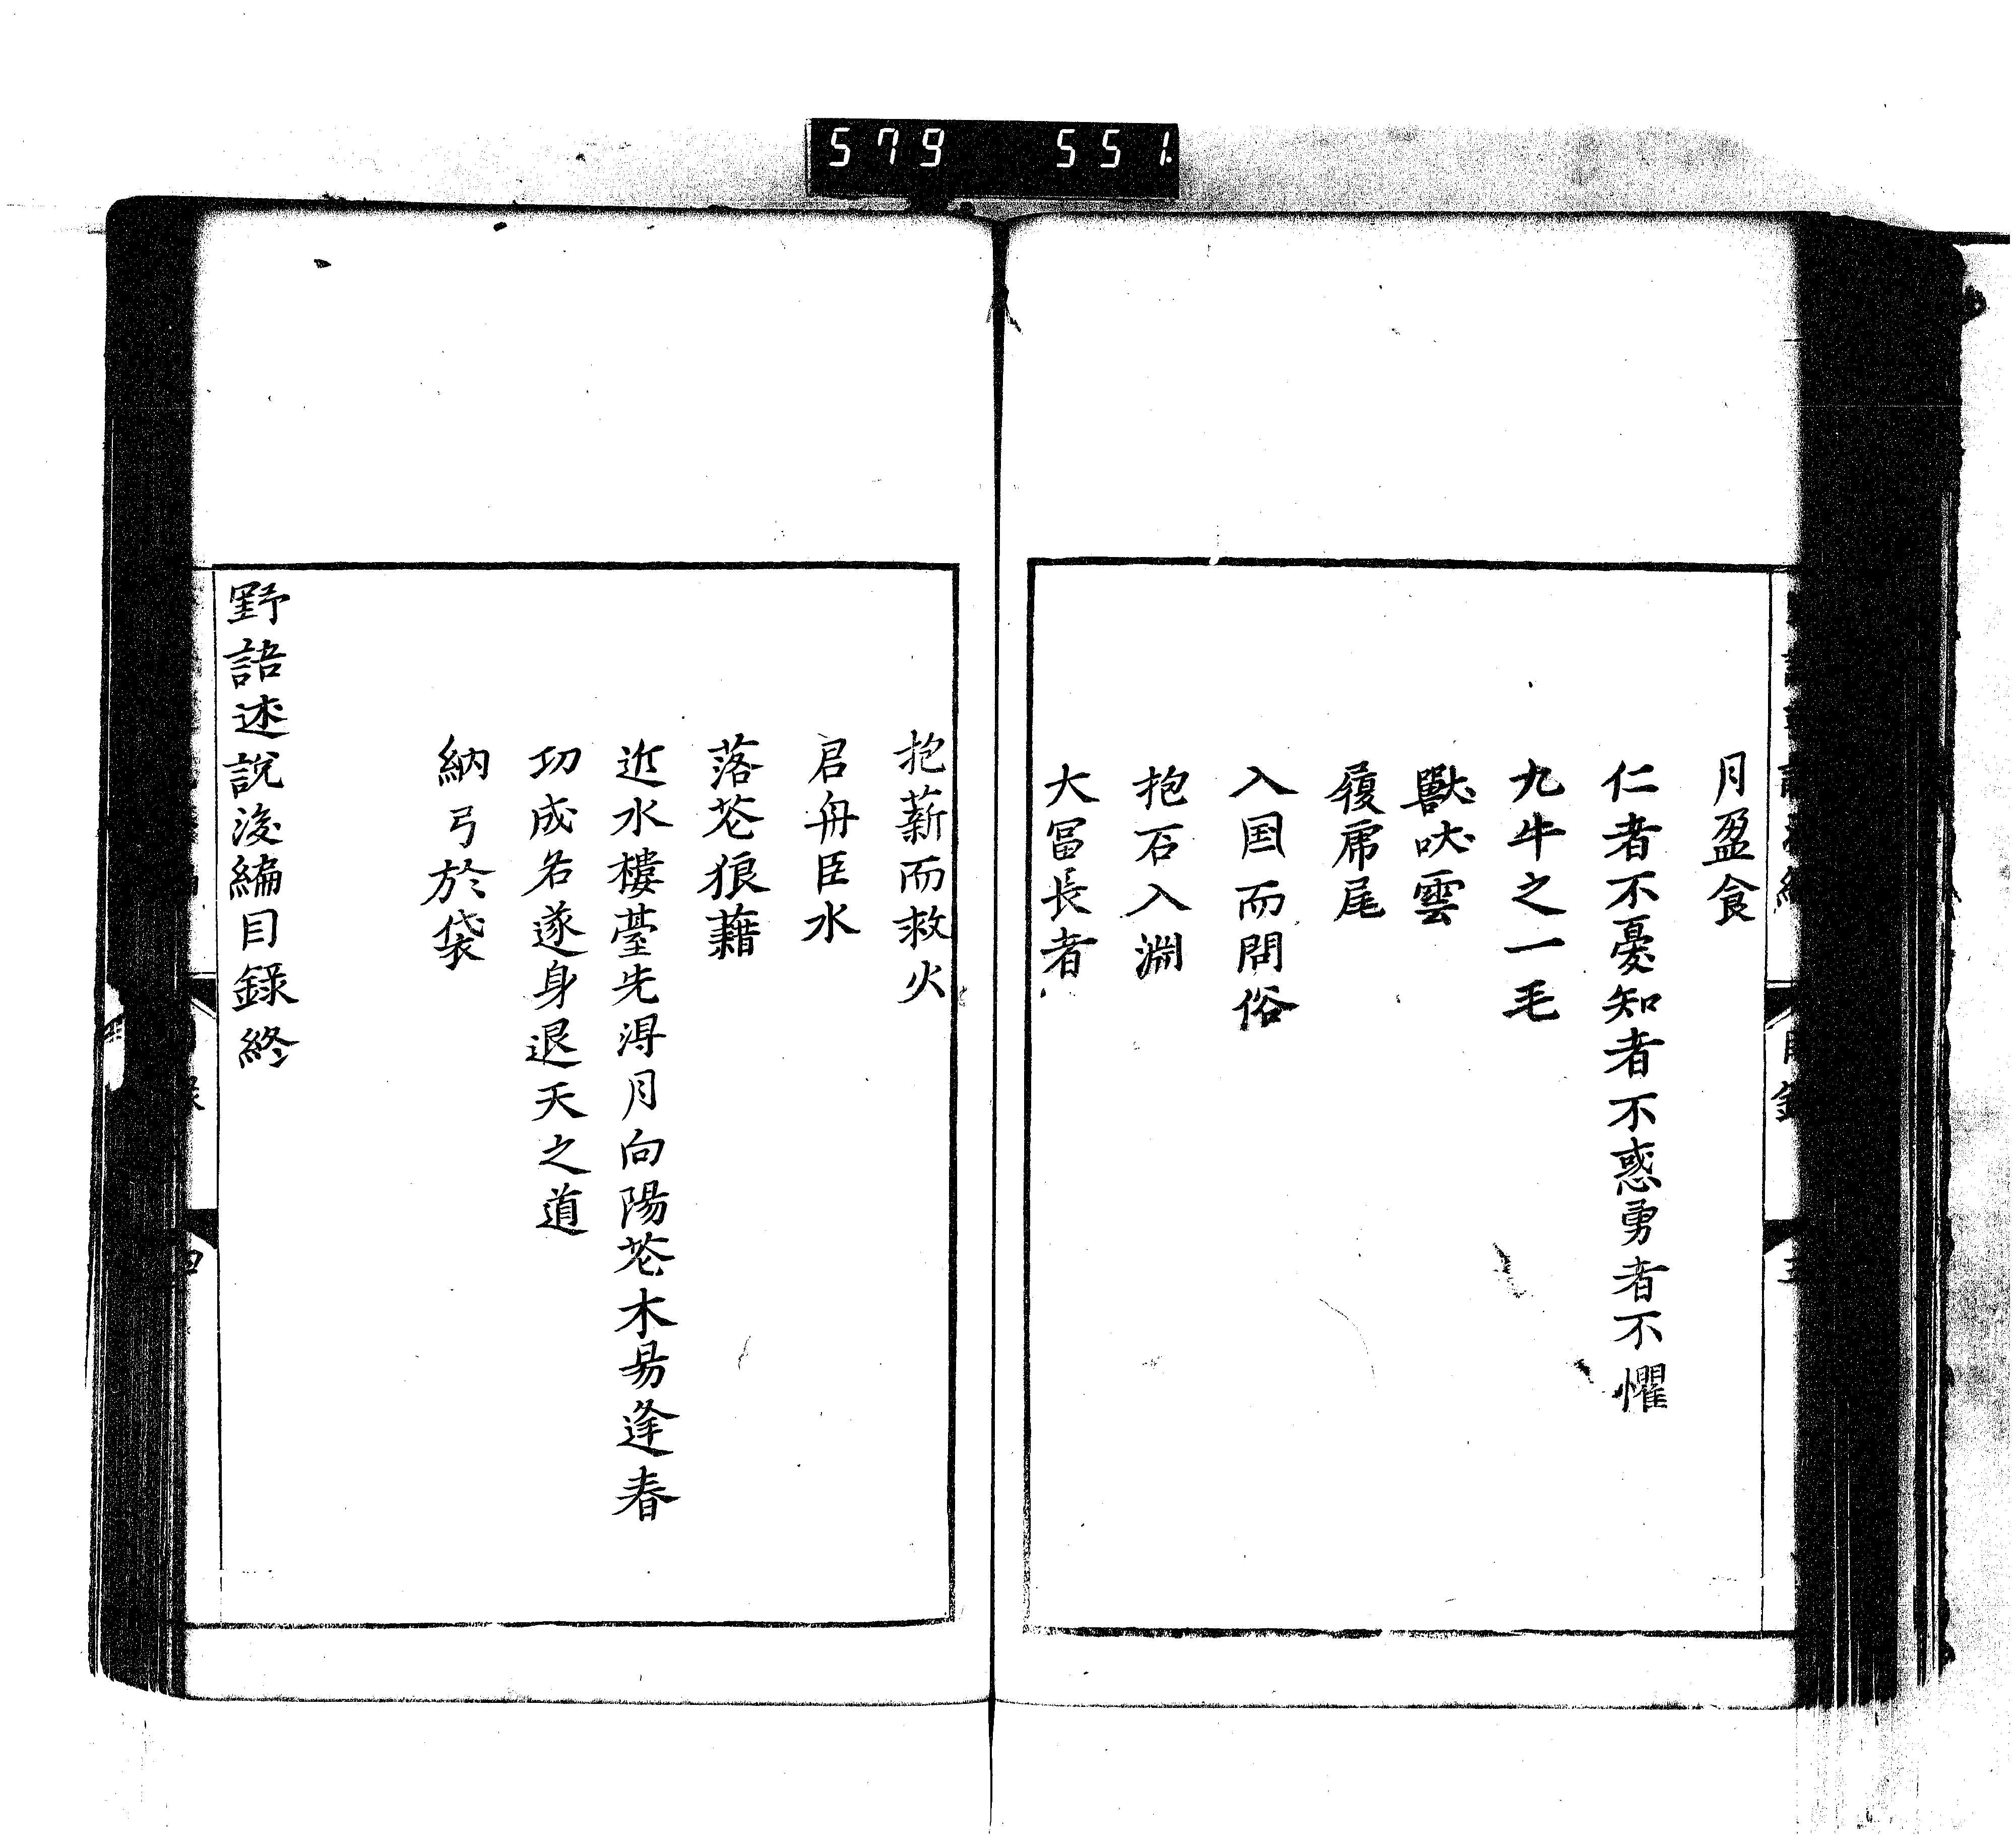 579 551
月盈食
仁者不憂知者不惑勇者不懼
九牛之一毛
獸吠雲
履虎尾
入国而問俗
抱石入淵
大冨長者
抱薪而救火
君舟臣水
落花狼藉
近水樓臺先得月向陽花木易逢春
功成名遂身退天之道
納弓於袋
野語述說後編目錄終